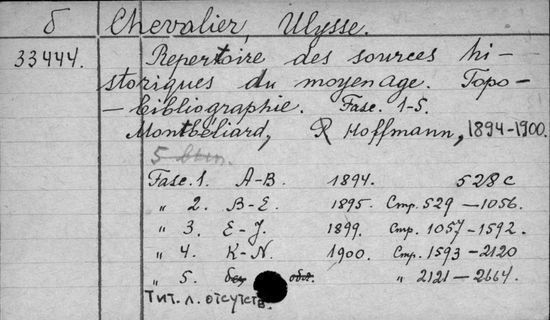 б Chevalier, Ulysse.
33444. Repertoire des sources hi-
storiques du moyenage. Topo-
-bibliographie. Fasc. 1-5.
Montbéliard, P. Hoffmann, 1894-1900.
5 вып.
Fasc. 1. A-B. 1894. 528 c
" 2. B-E. 1895. Стр. 529-1056.
" 3. E-J. 1899. Стр. 1057-1592.
" 4. K-N. 1900. Стр. 1593-2120
" 5. без обл. " 2121-2664.
Тит. л. отсутств.